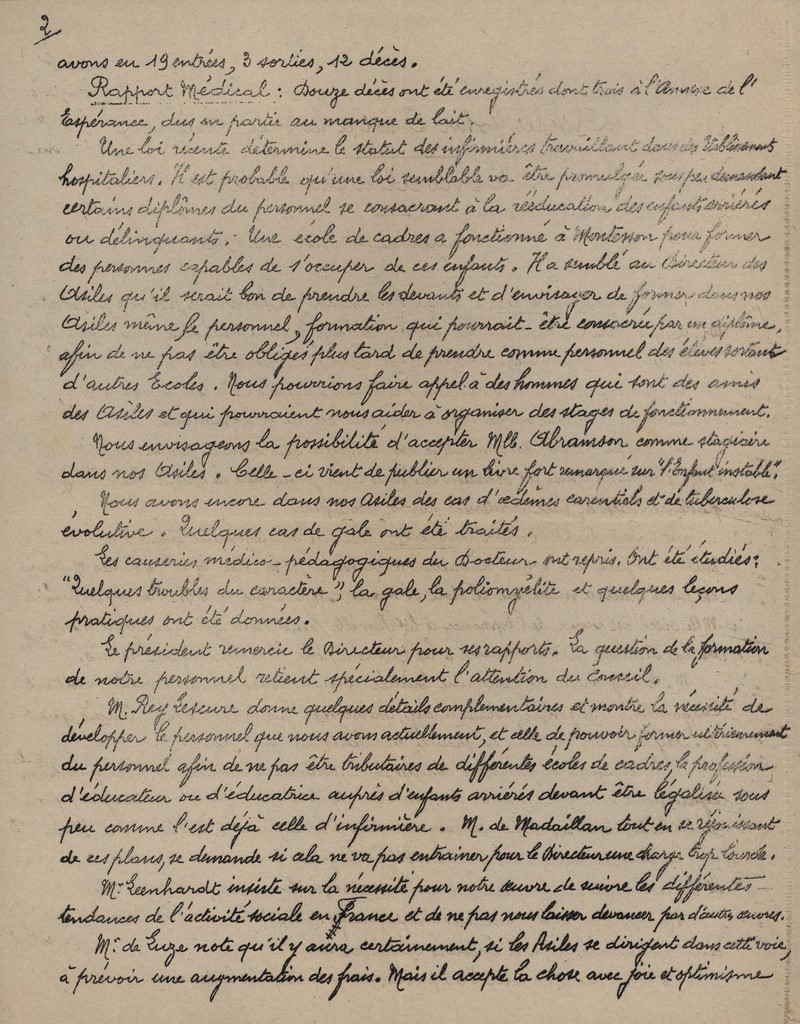 2
avons eu 19 entrées, 3 sorties, 12 décès.
Rapport Médical : Douze décès ont été enregistrés dont trois à l'Annexe de l'
Espérance, dus en partie au manque de lait.
Une loi récente détermine le statut des infirmières travaillant dans des Etablissement
hospitaliers. Il est probable qu'une loi semblable va être promulguée sous peu demandant
certains diplômes du personnel se consacrant à la rééducation des enfants arriérés
ou délinquants. Une école de cadres a fonctionné à Montesson pour former
des personnes capables de s'occuper de ces enfants. Il a semblé au Directeur des
Asiles qu'il serait bon de prendre les devants et d'envisager de former dans nos
Asiles même le personnel, formation qui pourrait-être consacrée par un diplôme,
afin de ne pas être obligés plus tard de prendre comme personnel des élèves sortant
d'autres Ecoles. Nous pourrions faire appel à des hommes qui sont des amis
des Asiles et qui pourraient nous aider à organiser des stages de fonctionnement.
Nous envisageons la possibilité d'accepter Mlle. Abramson comme stagiaire
dans nos Asiles. Celle-ci vient de publier un livre fort remarqué sur "l'Enfant instable".
Nous avons encore dans nos Asiles des cas d'œdèmes carentiels et de tuberculose
évolutive. Quelques cas de gale ont été traités.
Les causeries médico-pédagogiques du Docteur ont repris. Ont été étudiés :
"Quelques troubles du caractère", la gale, la poliomyélite et quelques leçons
pratiques ont été données.
Le président remercie le Directeur pour ses rapports. La question de la formation
de notre personnel retient spécialement l'attention du Conseil.
M. Rey Lescure donne quelques détails complémentaires et montre la nécessité de
développer le personnel que nous avons actuellement, et celle de pouvoir former ultérieurement
du personnel afin de ne pas être tributaires de différentes écoles de cadres, la profession
d'éducateur ou d'éducatrice auprès d'enfants arriérés devant être légalisée sous
peu comme l'est déjà celle d'infirmière. M. de Madaillan tout en se réjouissant
de ces plans, se demande si cela ne va pas entrainer pour le Directeur une charge trop lourde.
Mr Leenhardt insiste sur la nécessité pour notre œuvre de suivre les différentes
tendances de l'activité sociale en France et de ne pas nous laisser devancer par d'autres œuvres.
Mr. de Luze note qu'il y aura certainement, si les Asiles se dirigent dans cette voie,
à prévoir une augmentation des frais. Mais il accepte la chose avec joie et optimisme